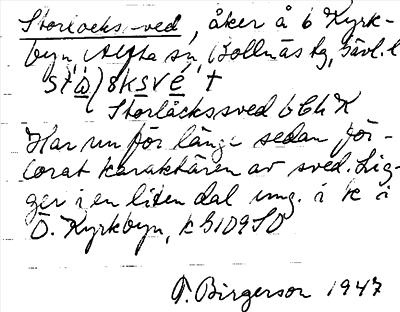 Storlocks-ved, åker å 6 Kyrk-
byn, Alfta sn, Bollnäs tg, Gävl. l
Storlåckssved 6 Ch K
Har nu för länge sedan för-
lorat karaktären av sved. Lig-
ger i en liten dal ung. i K i
Ö. Kyrkbyn, k
P. Birgerson 1947